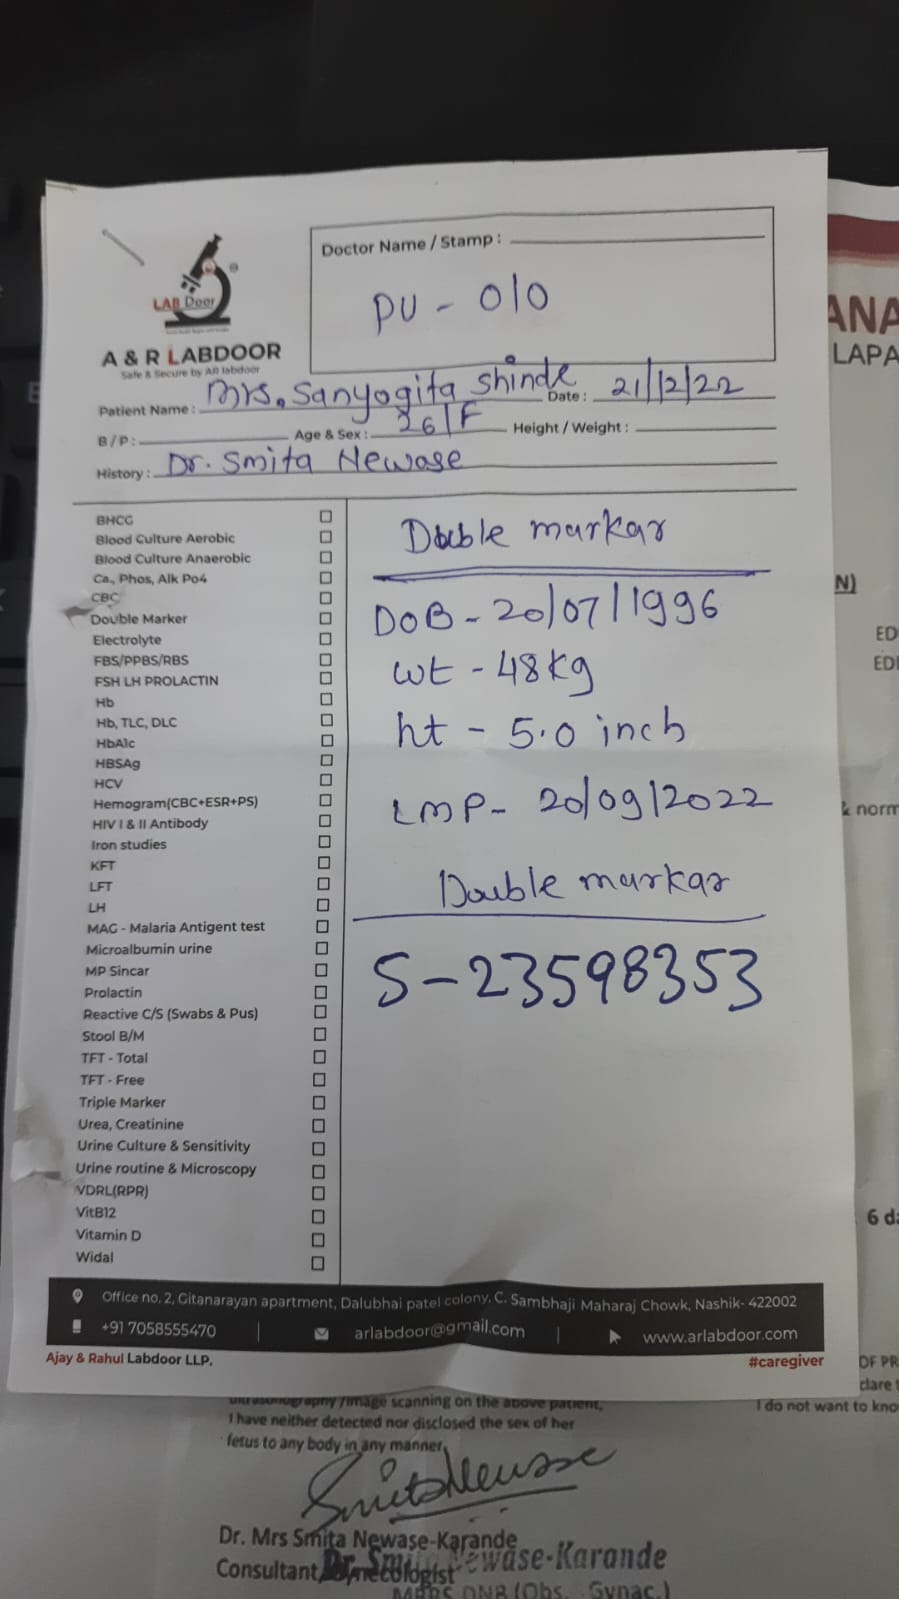 Doctor Name / Stamp :
PU - 010
LAB Door
A & R LABDOOR
Safe & Secure by AR labdoor
Patient Name : Mrs. Sanyogita Shinde Date : 21/12/22
B / P : Age & Sex : 26/F Height / Weight :
History : Dr. Smita Newase
BHCG
Blood Culture Aerobic
Blood Culture Anaerobic
Ca., Phos, Alk Po4
CBC
Double Marker
Electrolyte
FBS/PPBS/RBS
FSH LH PROLACTIN
Hb
Hb, TLC, DLC
HbA1c
HBSAg
HCV
Hemogram(CBC+ESR+PS)
HIV I & II Antibody
Iron studies
KFT
LFT
LH
MAG - Malaria Antigent test
Microalbumin urine
MP Sincar
Prolactin
Reactive C/S (Swabs & Pus)
Stool B/M
TFT - Total
TFT - Free
Triple Marker
Urea, Creatinine
Urine Culture & Sensitivity
Urine routine & Microscopy
VDRL(RPR)
VitB12
Vitamin D
Widal
Double markar
DOB - 20/07/1996
wt - 48kg
ht - 5.0 inch
LMP - 20/09/2022
Double markar
S-23598353
Office no. 2, Gitanarayan apartment, Dalubhai patel colony, C. Sambhaji Maharaj Chowk, Nashik- 422002
+91 7058555470 | arlabdoor@gmail.com | www.arlabdoor.com
Ajay & Rahul Labdoor LLP. #caregiver
ANA
LAPA
N)
ED
EDI
& norm
6 d
OF PR
clare
I do not want to kno
ultrasonography /image scanning on the above patient,
I have neither detected nor disclosed the sex of her
fetus to any body in any manner.
Smita Newase
Dr. Mrs Smita Newase-Karande
Consultant Gynecologist
Dr. Smita Newase-Karande
MBBS DNB (Obs. Gynac.)